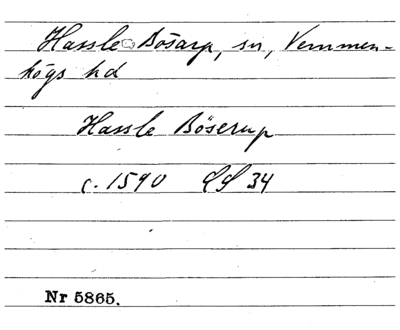 Hassle Bösarp, sn, Vemmen-
högs hd
Hassle Böserup
c. 1590 LS 34
Nr 5865.